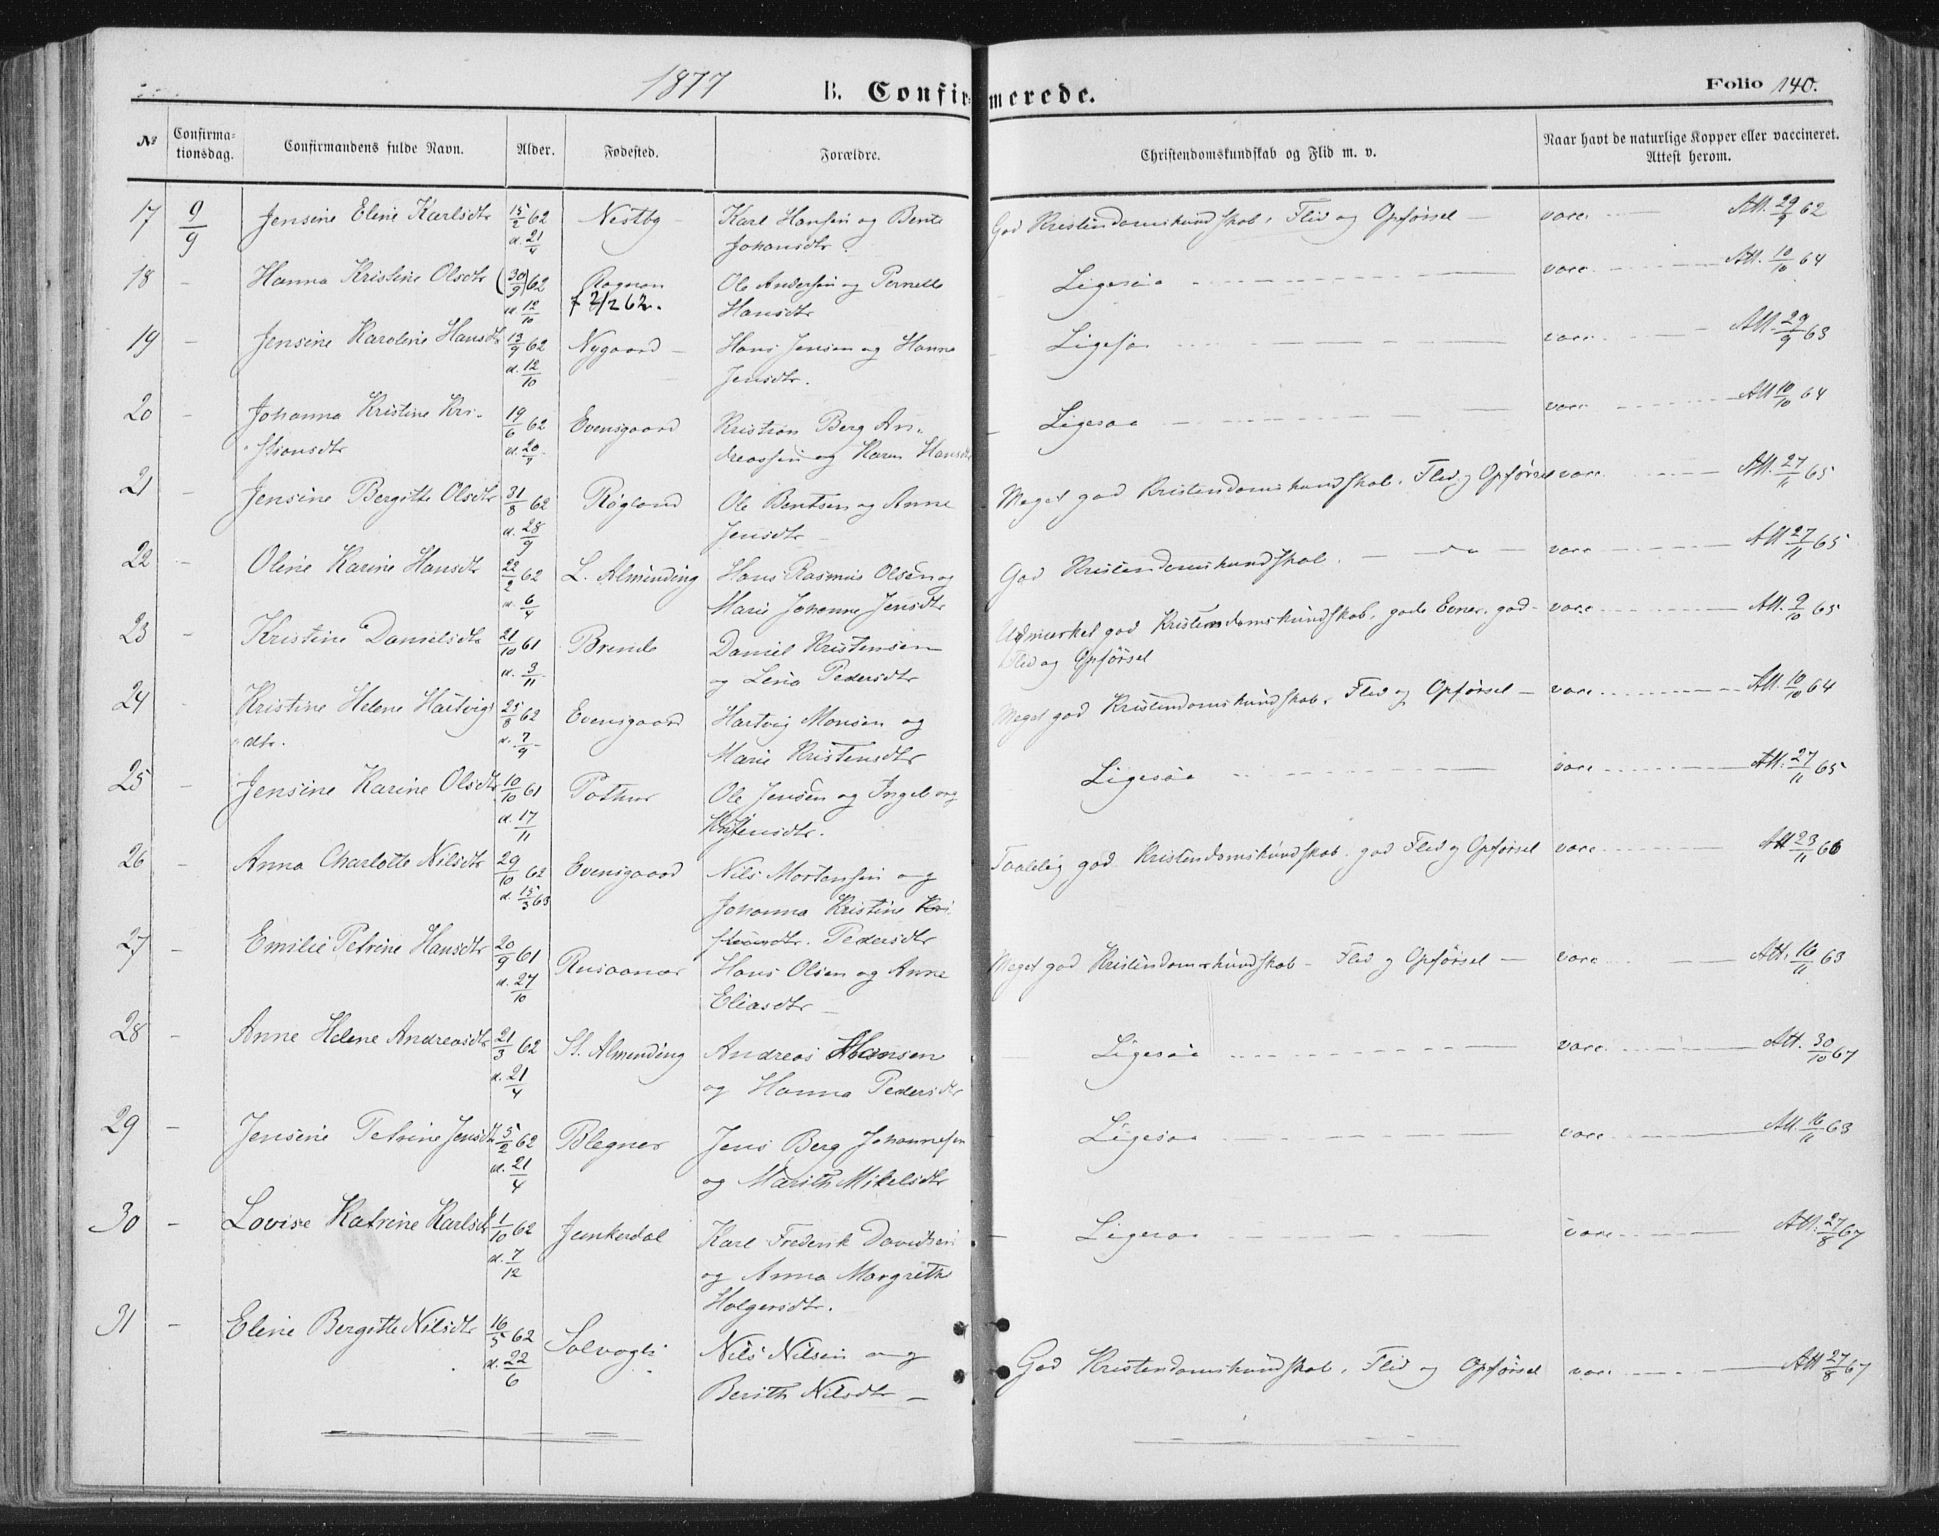 1877 B. Confirmerede. Folio 140.
No Confirmationsdag. Confirmandens fulde Navn. Alder. Fødested. Forældre. Christendomskundskab og Flid m. v. Naar havt de naturlige Kopper eller vaccineret. Attest herom.
17 9/9 Jensine Eline Karlsdtr 15/2 62 Nestby - Karl Hansen og Bente God Kristendomskundskab, Flid og Opførsel - vacc. Att. 29/9 62
d. 21/4 Johansdtr.
18 - Hanna Kristine Olsdtr (30/9) 62 Rognan Ole Andersen og Pernelle - Ligesaa vacc. Att. 10/10 64
d. 12/10 f 2/12 62. Hansdtr
19 - Jensine Karoline Hansdtr 13/9 62 Nygaard - Hans Jensen og Hanna - Ligesaa vacc. Att. 29/9 63
d. 12/10 Jensdtr.
20 - Johanna Kristine Kri- 19/6 62 Evensgaard Kristian Berg An- - Ligesaa vacc. Att 10/10 64
stiansdtr d. 20/9 dreassen og Karen Hansdtr
21 - Jensine Bergitte Olsdtr 31/8 62 Røgland Ole Bentsen og Anne Meget god Kristendomskundskab, Flid og Opførsel vacc. Att. 27/11 65
d. 28/9 Jensdtr -
22 - Oline Karine Hansdtr 22/2 62 L. Alminding Hans Rasmus Olsen og God Kristendomskundskab. - do - vacc Att 27/11 65
d. 6/4 Marie Johanne Jensdtr
23 - Kristine Danielsdtr 21/10 61 Brende Daniel Kristensen Udmærket god Kristendomskundskab, gode Evner, god - vacc Att. 9/10 65
d. 3/11 og Lena Pedersdtr Flid og Opførsel
24 - Kristine Helene Hartvigs 25/8 62 Evensgaard Hartvig Monsen og Meget god Kristendomskundskab, Flid og Opførsel - vacc Att. 10/10 64
dtr. d. 7/9 Marie Kristensdtr
25 - Jensine Karine Olsdtr 10/10 61 Pothus Ole Jensen og Ingeborg Ligesaa vacc Att. 27/11 65
d. 17/11 Kristensdtr.
26 - Anna Charlotte Nilsdtr 29/10 62 Evensgaard Nils Mortensen og Taalelig god Kristendomskundskab, god Flid og Opførsel vacc Att 23/11 66
d. 15/3 63 Johanna Kristine Kri-
stiansdtr. Pedersdtr
27 - Emilie Petrine Hansdtr 20/9 61 Rusaanæs Hans Olsen og Anne Meget god Kristendomskundskab - Flid og Opførsel - vacc Att. 16/11 63
d. 27/10 Eliasdtr -
28 - Anne Helene Andreasdtr 21/3 62 St. Almending Andreas Hansen Ligesaa vacc. Att. 30/10 67
d. 21/4 og Hanna Pedersdtr
29 - Jensine Petrine Jensdtr 5/2 62 Blegnes Jens Berg Johannesen - Ligesaa vacc Att. 16/11 63
d. 21/4 og Marith Mikelsdtr
30 - Lovise Katrine Karlsdtr 1/10 62 Junkerdal Karl Frederik Davidsen - Ligesaa vacc Att. 27/8 67
d. 7/12 og Anna Margrethe
Holgersdtr.
31 - Eline Bergitte Nilsdtr 16/5 62 Solvogli Nils Nilsen og God Kristendomskundskab, Flid og Opførsel vacc Att 27/8 67
d. 22/6 Berith Nilsdtr -